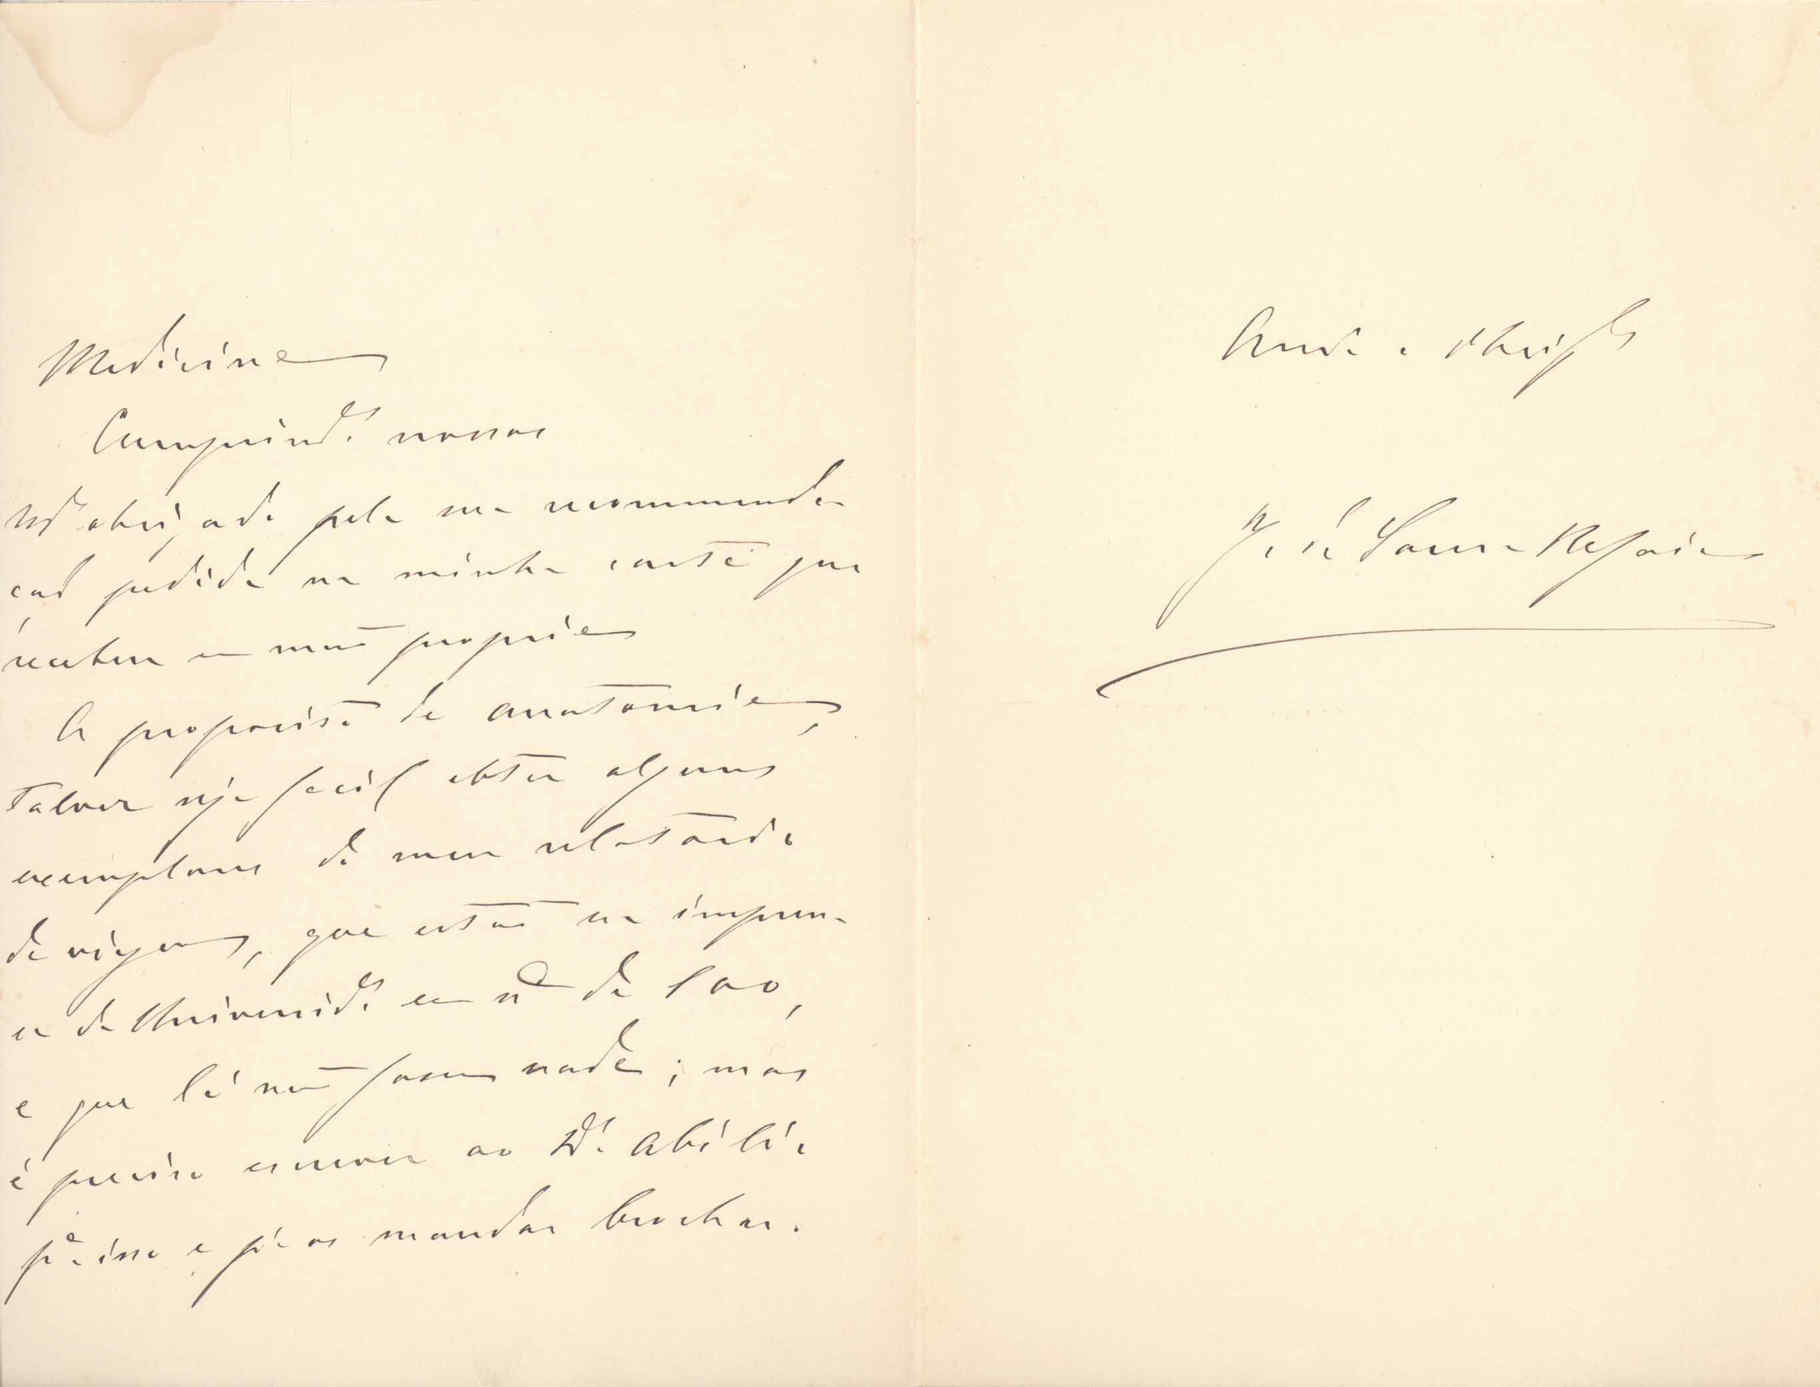 Medicina
Cumprimdos nossos
Mto obrigado pela sua recommenda-
ção pedida na minha carta que
recebeu em mão propria
A proposito de anatomia,
talvez seja facil obter alguns
exemplares do meu relatorio
de viagem, que estão na impren-
sa da Universide em no de 500,
e que lá não fazem nada; mas
é preciso escrever ao Dr. Abilio
pa isso e pa os mandar brochar.
Amo e obrigdo
J. de Sousa Refoios